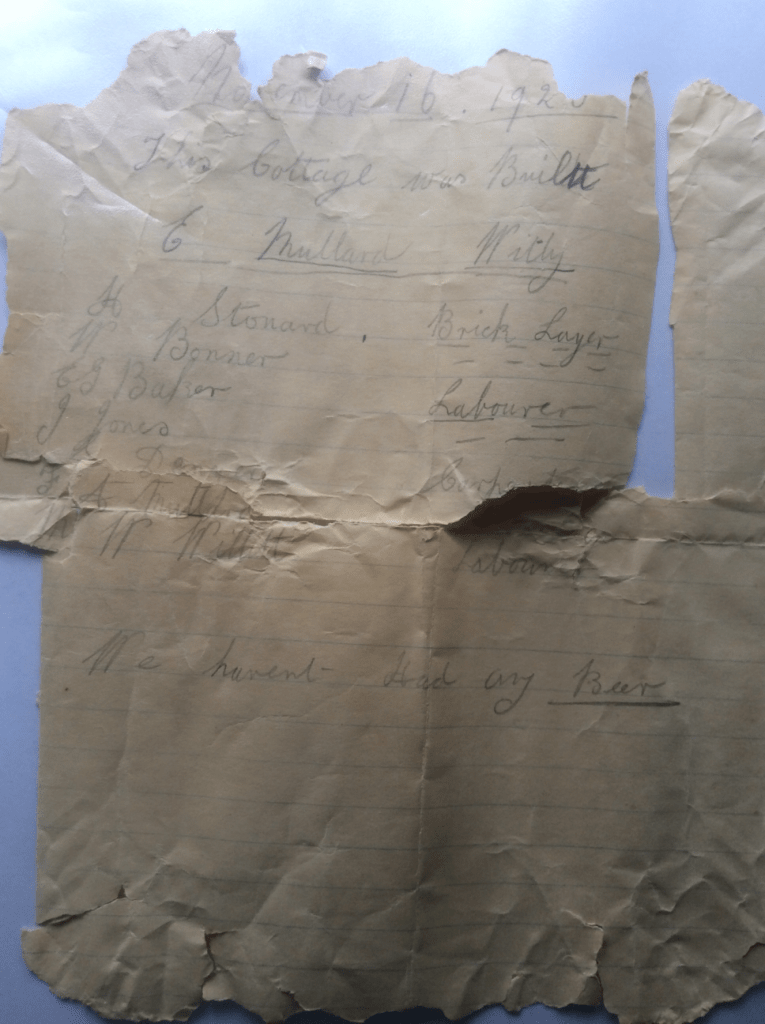 November 16. 192
This Cottage was Built
E Mullard Witly
H Stonard. Brick Layer
W Bonner
E G Baker
Labourer
J Jones
W
We havent Had any Beer